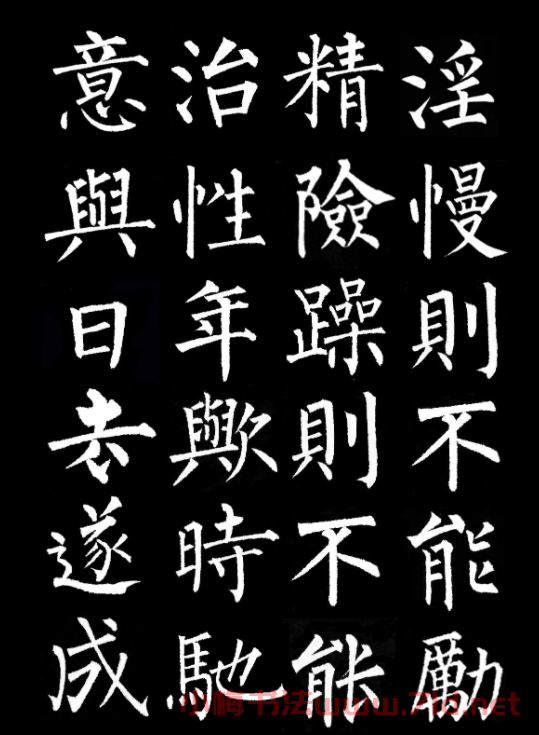 淫慢則不能勵
精險躁則不能
治性年歟時馳
意與日去遂成
小梅书法www.7ld.net